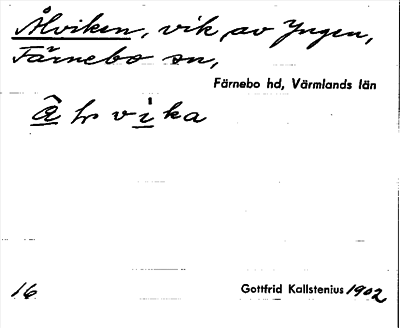 Ålviken, vik av Yngen,
Färnebo sn,
Färnebo hd, Värmlands län
vika
16 Gottfrid Kallstenius 1902